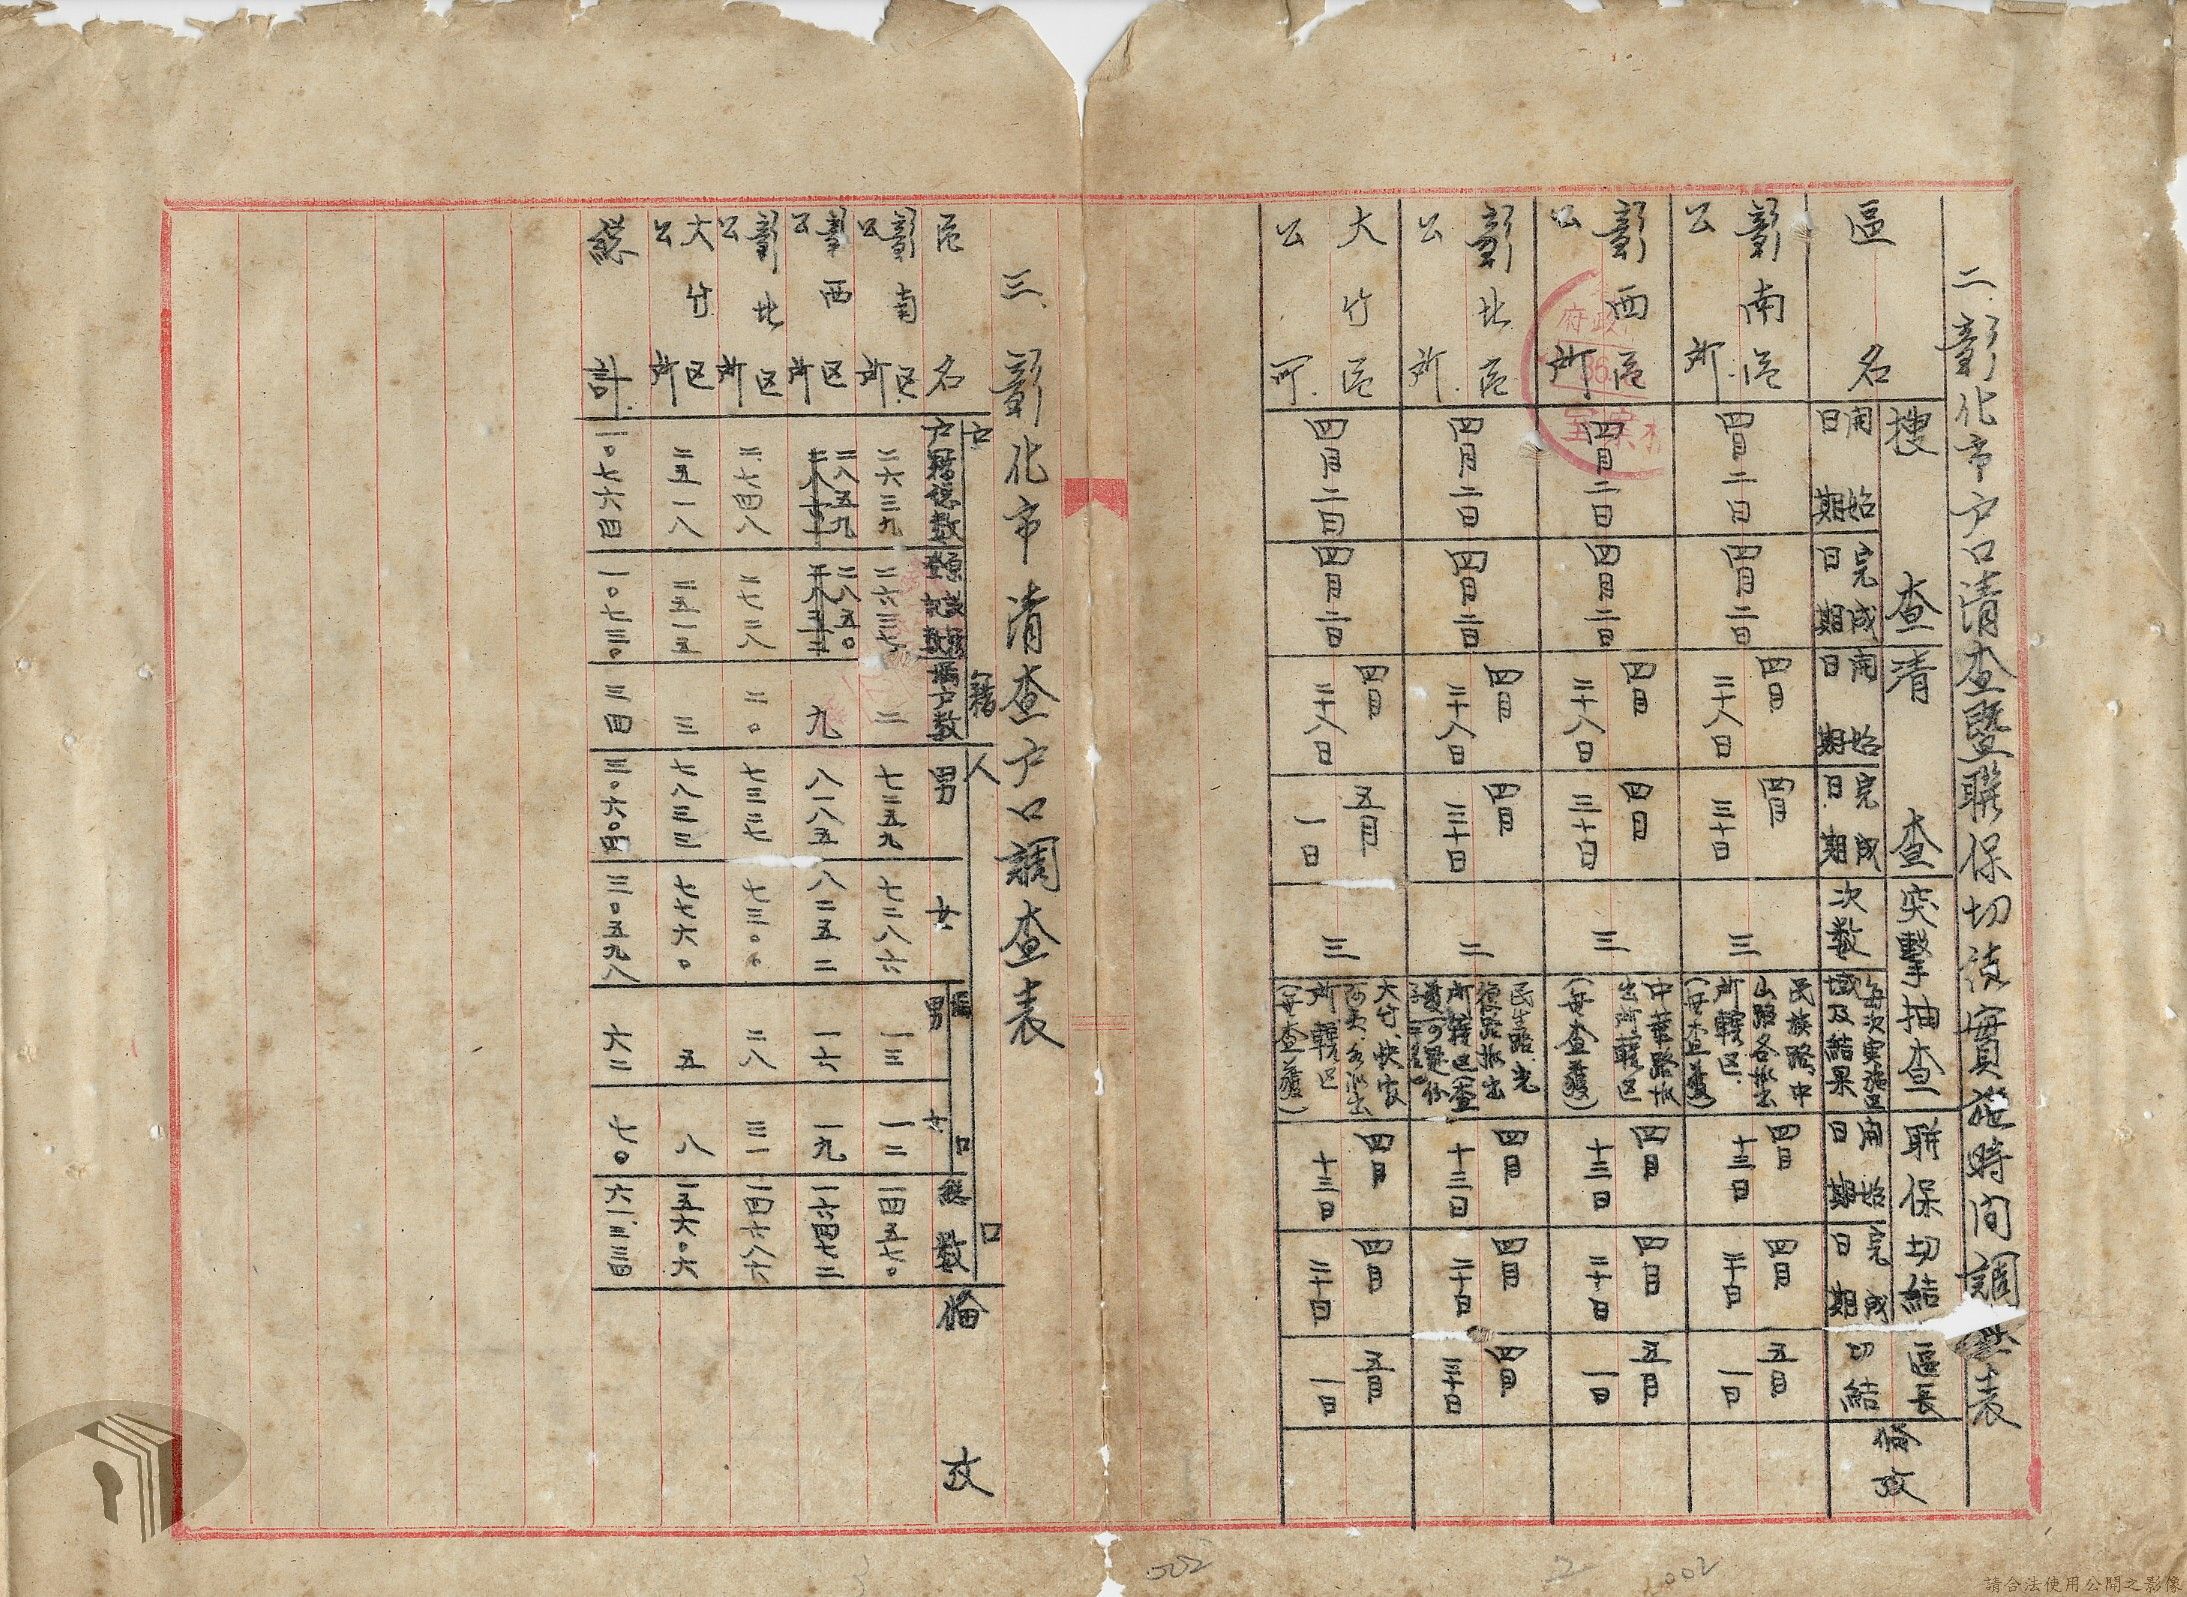 二、彰化市户口清查暨聯保切结實施時间調查表
區名
搜查
開始日期
完成日期
清查
開始日期
完成日期
突擊抽查
次數
每次実施区域及結果
聯保切結
開始日期
完成日期
區長切結
俻攷
彰南區公所
四月二日
四月二日
四月二十八日
四月三十日
三
民族路、中山路各派出所轄区
四月十三日
四月二十日
五月一日
彰西區公所
四月二日
四月二日
四月二十八日
四月三十日
三
中華路派出所轄区
(毋查獲)
四月十三日
四月二十日
五月一日
彰北區公所
四月二日
四月二日
四月二十八日
四月三十日
二
四月十三日
四月二十日
四月三十日
大竹區公所
四月二日
四月二日
四月二十八日
五月一日
三
所轄区
(毋查獲)
四月十三日
四月二十日
五月一日
三、彰化市清查户口調查表
区名
户籍
户籍總數
漏户數
人口
男
女
漏口
男
女
總數
俻攷
彰南区公所
二六三九
二六三七
二
七二五九
七二八六
一三
一二
一四五七〇
彰西区公所
二八五九
二八五〇
九
八一八五
八二五二
一六
一九
一六四七二
彰北区公所
二七四八
二七二八
二〇
七三二七
七三〇〇
二八
三一
一四六八六
大竹区公所
二五一八
二五一五
三
七八三三
七七六〇
五
八
一五六〇六
總計
一〇七六四
一〇七三〇
三四
三〇六〇四
三〇五九八
六二
七〇
六一三三四
002
2
002
3
請合法使用公開之影像